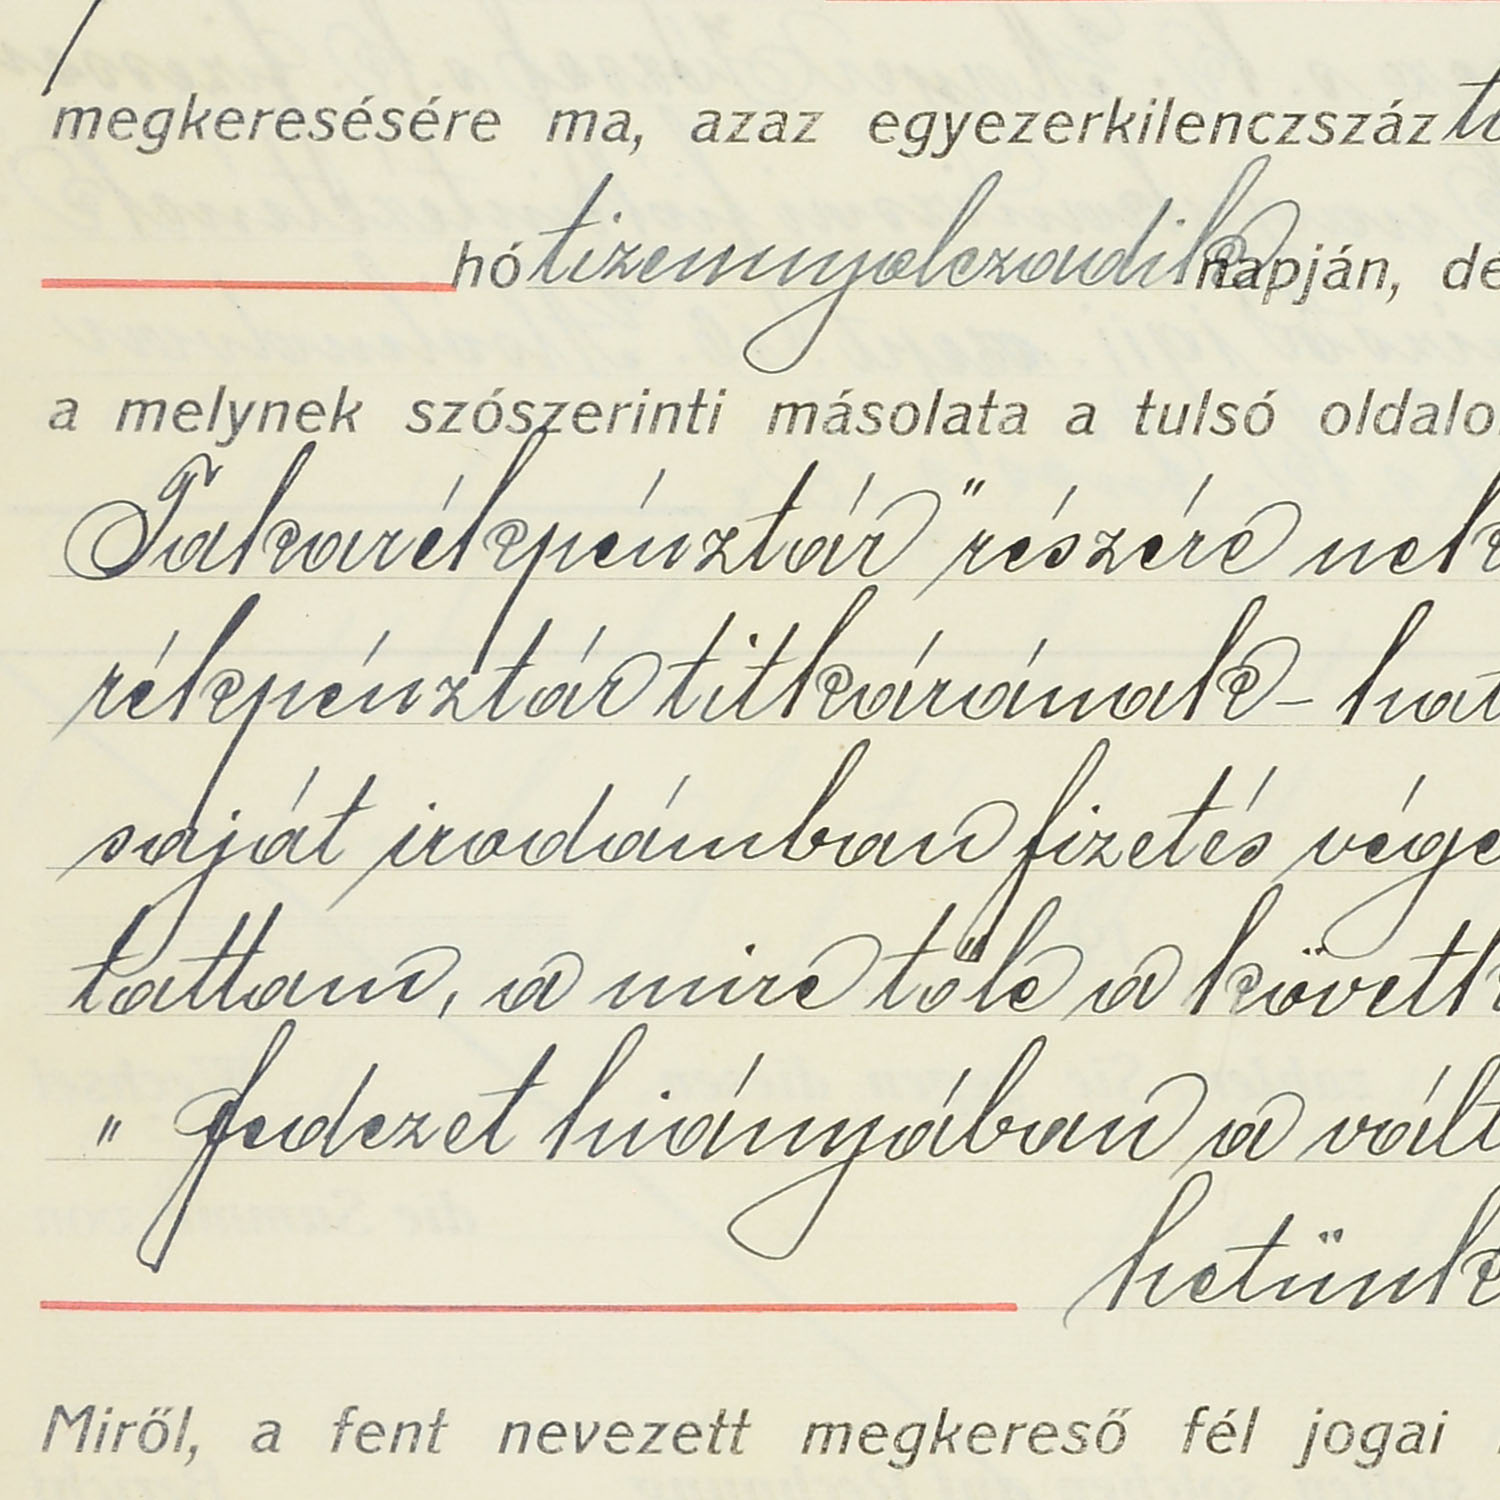 megkeresésére ma, azaz egyezerkilenczszáz
hó tizennyolczadik napján, de
a melynek szószerinti másolata a tulsó oldalo
Takarékpénztár" részére nek
rékpénztár titkárának - hat
saját irodámban fizetés vége
tattam, a mire tőle a követk
" Fedezet hiányában a vált
hetünk
Miről, a fent nevezett megkereső fél jogai